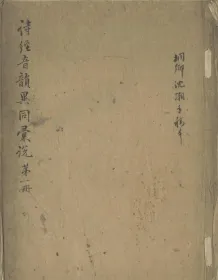 桐鄉沈淑手稿本
詩經音韻異同彙說 第一冊